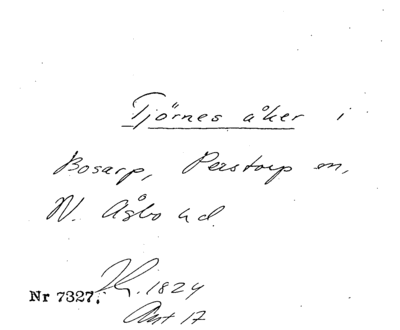 Tjörnes åker i
Bosarp, Perstorp sn,
N. Åsbo hd.
1824
Nr 7327.
Art 17